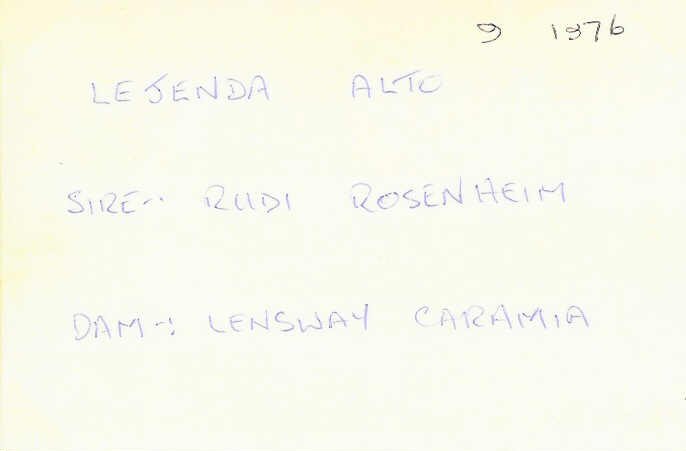 9 1376
LEJENDA ALTO
SIRE-: RUDI ROSENHEIM
DAM-: LENSWAY CARAMIA